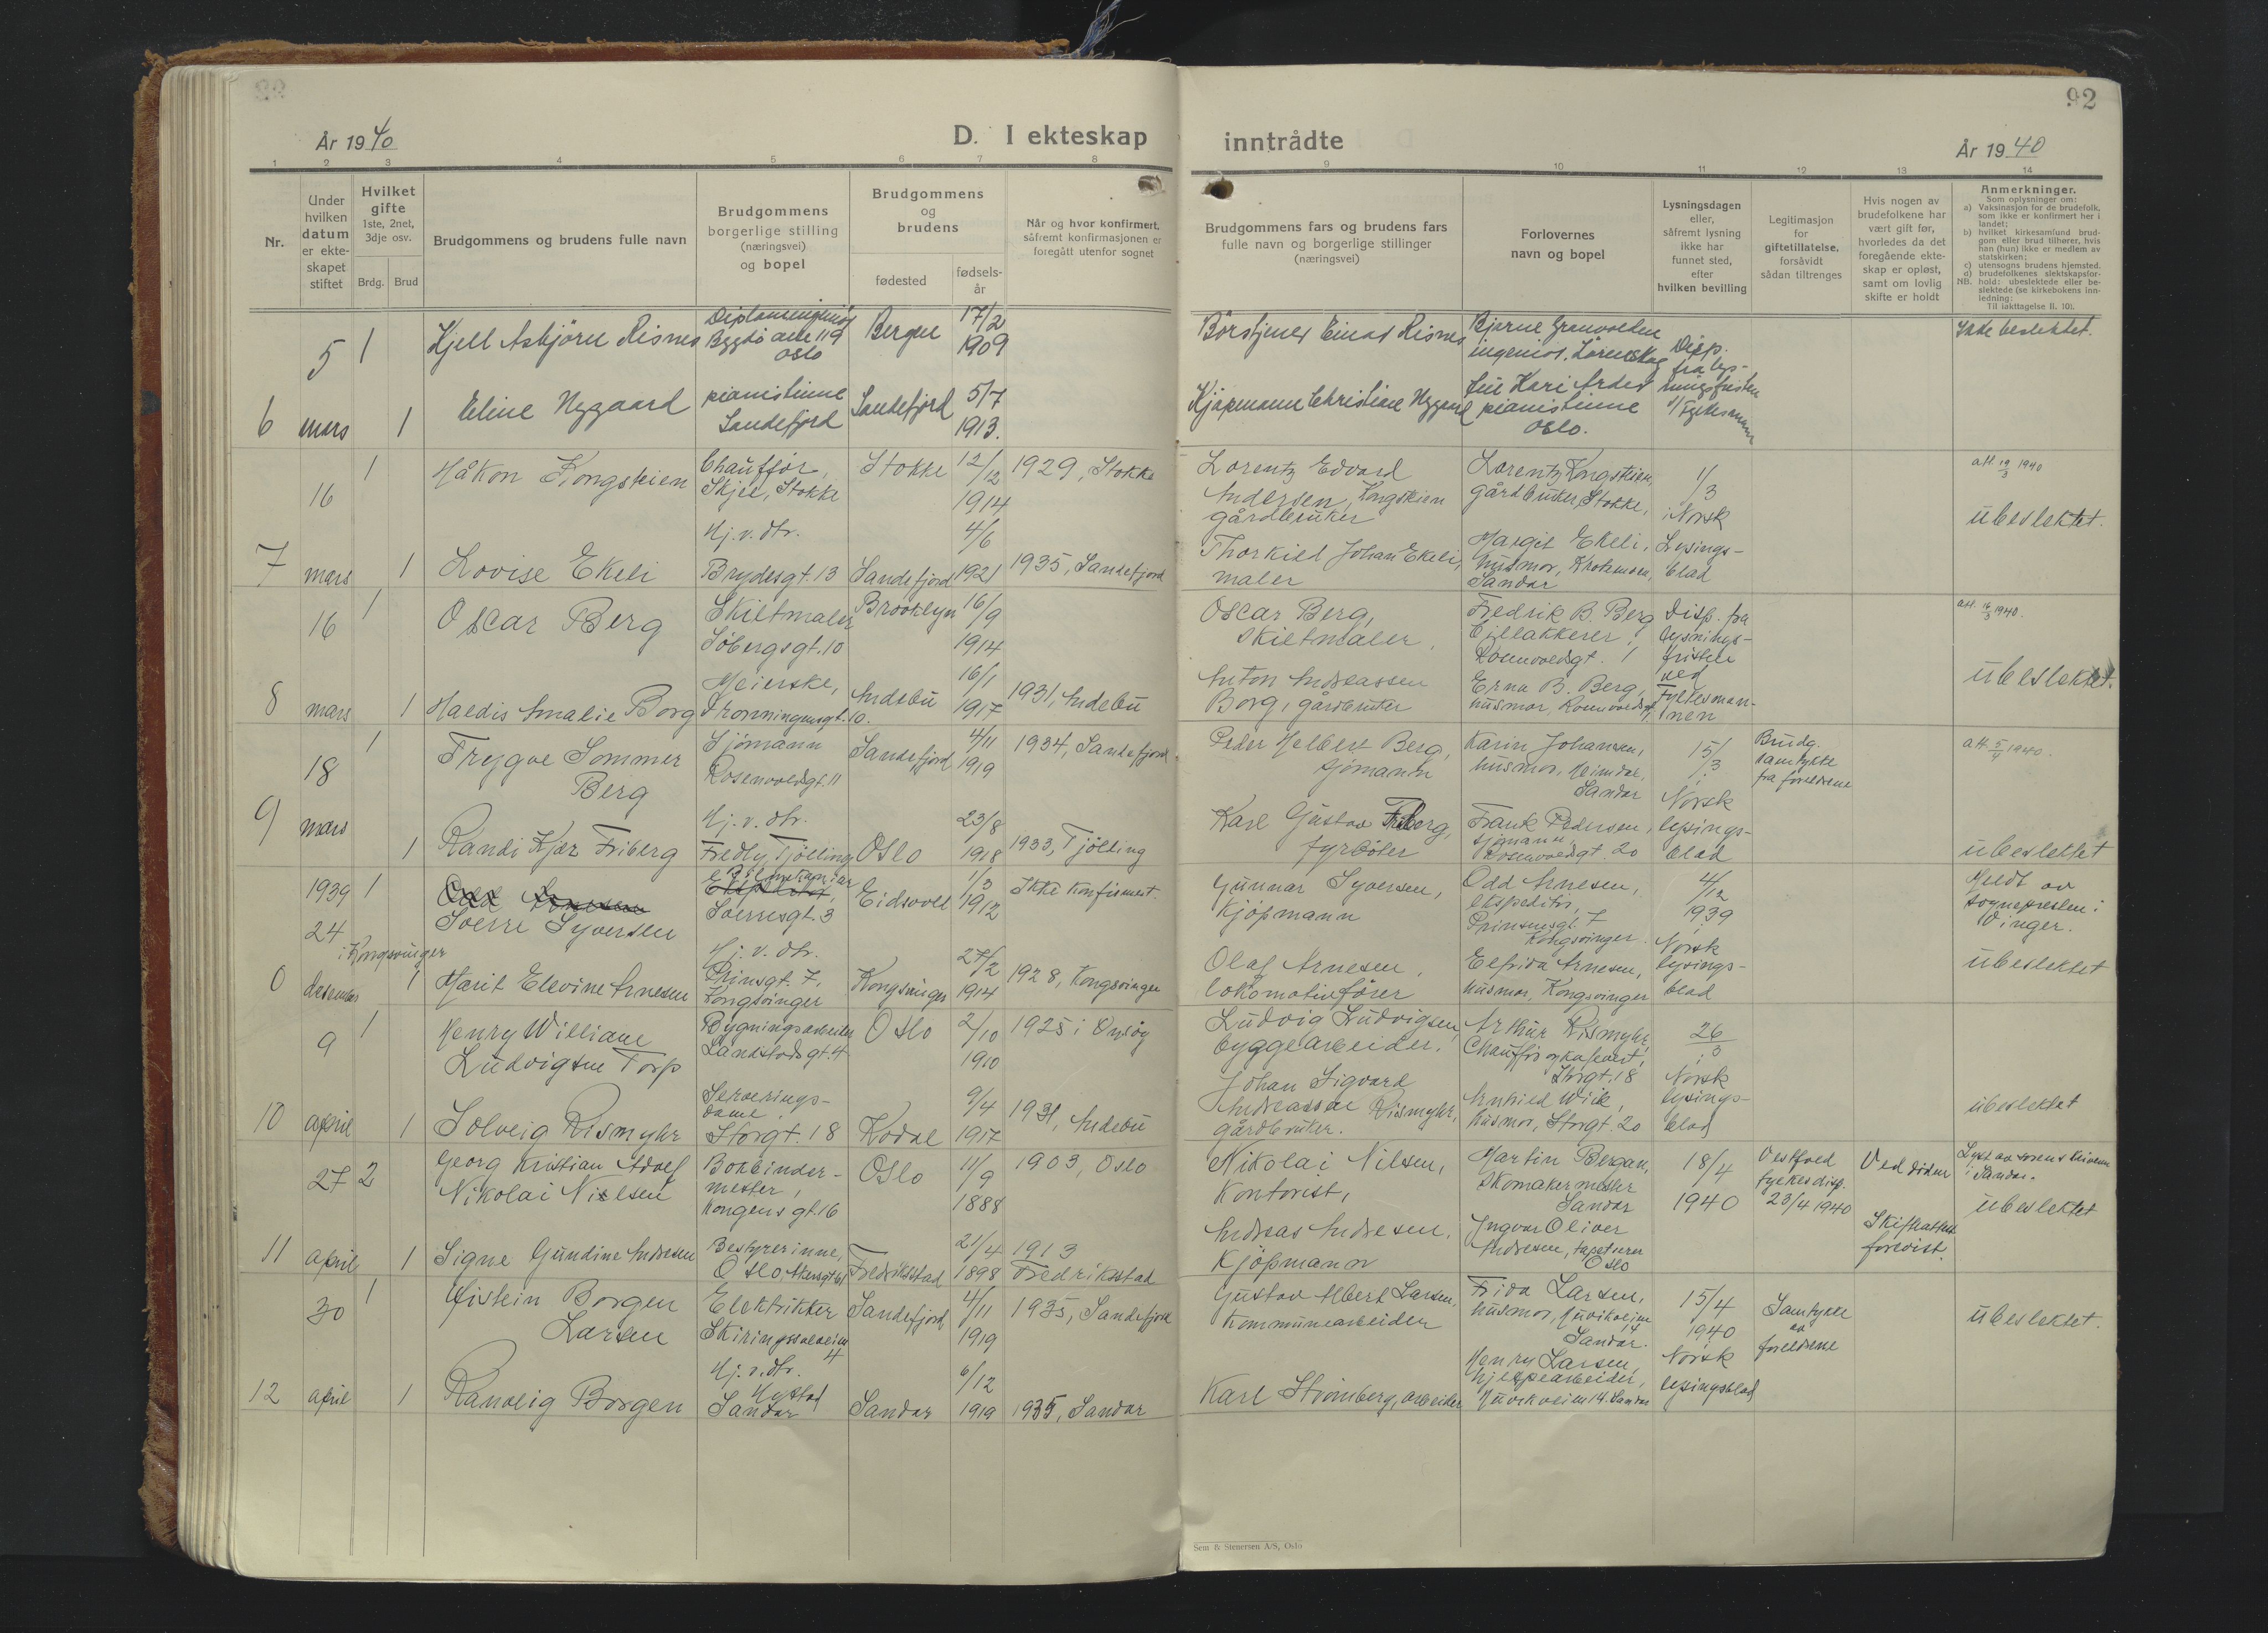 92
År 1940
D. I ekteskap inntrådte
År 1940
1 2 3 4 5 6 7 8 9 10 11 12 13 14
Nr.
Under hvilken datum er ekte-skapet stiftet
Hvilket gifte
1ste, 2net, 3dje osv.
Brdg. Brud
Brudgommens og brudens fulle navn
Brudgommens borgerlige stilling (næringsvei) og bopel
Brudgommens og brudens
fødested
fødsels-år
Når og hvor konfirmert, såfremt konfirmasjonen er foregått utenfor sognet
Brudgommens fars og brudens fars fulle navn og borgerlige stillinger (næringsvei)
Forlovernes navn og bopel
Lysningsdagen eller, såfremt lysning ikke har funnet sted, efter hvilken bevilling
Legitimasjon for giftetillatelse, forsåvidt sådan tiltrenges
Hvis nogen av brudefolkene har vært gift før, hvorledes da det foregående ekte-skap er opløst, samt om lovlig skifte er holdt
Anmerkninger.
Som oplysninger om:
a) Vaksinasjon for de brudefolk, som ikke er konfirmert her i landet;
b) hvilket kirkesamfund brud-gom eller brud tilhører, hvis han (hun) ikke er medlem av statskirken;
c) utensogns brudens hjemsted.
d) brudefolkenes slektskapsfor-hold: ubeslektede eller be-slektede (se kirkebokens inn-ledning:
NB. Til iakttagelse II. 10).
5 1 Kjell Asbjørn Risnes
Bygdö alle 119
Oslo
Bergen
17/2
1909
Einar Risnes
Bjarne Granvolden
ingeniør, Lörenskog
Disp.
fra lys-
ningsfristen
v/ Fylkesmann
Ikke beslektet.
6 mars 1 Eline Nygaard
pianistinne
Sandefjord
Sandefjord
5/7
1913.
Kjøpmann Christian Nygaard
Kari
pianistinne
Oslo.
16 1 Håkon Kongsteien
Chauffør,
Skjee, Stokke
Stokke
12/12
1914
1929, Stokke
Lorentz Edvard
Andersen, Kongsteien
gårdbruker
Lorentz Kongsteien,
gårdbruker, Stokke,
1/3
i Norsk
Lysings-
blad
att. 19/3 1940
ubeslektet.
7 mars 1 Lovise Ekeli
Hj. v. dtr.
Brydesgt. 13
Sandefjord
4/6
1921
1935, Sandefjord
Thorkild Johan Ekeli,
maler
Margit Ekeli,
husmor,
Sandar
16 1 Oscar Berg
Skiltmaler
Söbergsgt. 10
Brooklyn
16/9
1914
Oscar Berg,
skiltmaler.
Fredrik B. Berg
billakkerer,
Rosenvoldsgt. 1
Disp. fra
lysnings-
fristen
ved
Fylkesman-
nen
att. 1940.
ubeslektet.
8 mars 1 Haldis Amalie Borg
Meierske,
Dronningensgt. 10.
Andebu
16/1
1917
1931, Andebu
Anton Andreassen
Borg, gårdbruker
Erna B. Berg,
husmor, Rosenvoldsgt.
18 1 Trygve Sommer
Berg
Sjömann
Rosenvoldsgt. 11
Sandefjord
4/11
1919
1934, Sandefjord
Peder Helbert Berg,
sjömann
Karin Johansen,
husmor, Heimdar,
Sandar
15/3
i
Norsk
lysings-
blad
Brudg.
samtykke
fra foreldrene
att. 5/4 1940.
9 mars 1 Randi Kjær Friberg
Hj. v. dtr.
Fredly, Tjölling
Oslo
23/8
1918
1933, Tjölling
Karl Gustav Friberg,
fyrböter
Frank Pedersen,
sjömann
Rosenvoldsgt. 20
ubeslektet
1939 1 Odd Arnesen
24 Sverre Syversen
i Kongsvinger
Bilmekaniker
Ekspeditör,
Sverresgt. 3
Eidsvoll
1/3
1912
Ikke konfirmert.
Gunnar Syversen,
Kjöpmann
Odd Arnesen,
ekspeditör,
Prinsensgt. 7
Kongsvinger.
4/12
1939
i
Norsk
lysings-
blad
Meldt av
sognepresten i
Vinger.
ubeslektet
0 desember 1 Marit Elevine Arnesen
Hj. v. dtr.
Prinsgt. 7,
Kongsvinger
Kongsvinger
27/2
1914
1928, Kongsvinger
Olaf Arnesen,
lokomotivförer
Elfrida Arnesen,
husmor, Kongsvinger
9 1 Henry William
Ludvigsen Torp
Bygningsarbeider
Landstadsgt. 4
Oslo
2/10
1910
1925 i Onsöy
Ludvig Ludvigsen,
byggearbeider.
Arthur Rismyhr,
Chauffør og kafevert,
Storgt. 18
26/3
i
Norsk
lysings-
blad
10 april 1 Solveig Rismyhr
Serverings-
dame,
Storgt. 18
Kodal
9/4
1917
1931, Andebu
Johan Sigvard
Andreassen Rismyhr,
gårdbruker.
Arnhild Wiik,
husmor, Storgt. 20
ubeslektet
27 2 Georg Kristian Adolf
Nikolai Nielsen
Bokbinder-
mester,
Kongens gt. 16
Oslo
11/9
1888
1903, Oslo
Nikolai Nilsen,
Kontorist,
Martin Bergan,
Skomakermester
Sandar
18/4
1940
Vestfold
fylkesdisp.
23/4 1940
Ved döden
Skifteattest
forevist.
Lyst av sorenskriveren
i Sandar.
ubeslektet
11 april 1 Signe Gundine Andresen
Bestyrerinne,
Oslo, Akersgt. 61
Fredrikstad
21/4
1898
1913
Fredriksstad
Andreas Andresen,
Kjöpmann
Ingvar Oliver
Andresen, tapetserer
Oslo
30 1 Øistein Borgen
Larsen
Elektriker
Skiringssalveien
4
Sandefjord
4/11
1919
1935, Sandefjord
Gustav Albert Larsen,
kommunearbeider
Frida Larsen,
husmor,
14
Sandar.
15/4
1940
i
Norsk
lysingsblad
Samtykke
av
foreldrene
ubeslektet.
12 april 1 Ranveig Borgen
Hj. v. dtr.
Nystad
Sandar
Sandar
6/12
1919
1935, Sandar
Karl Strömberg, arbeider
Henry Larsen,
hjelpearbeider,
14. Sandar
Sem & Stenersen A/S, Oslo